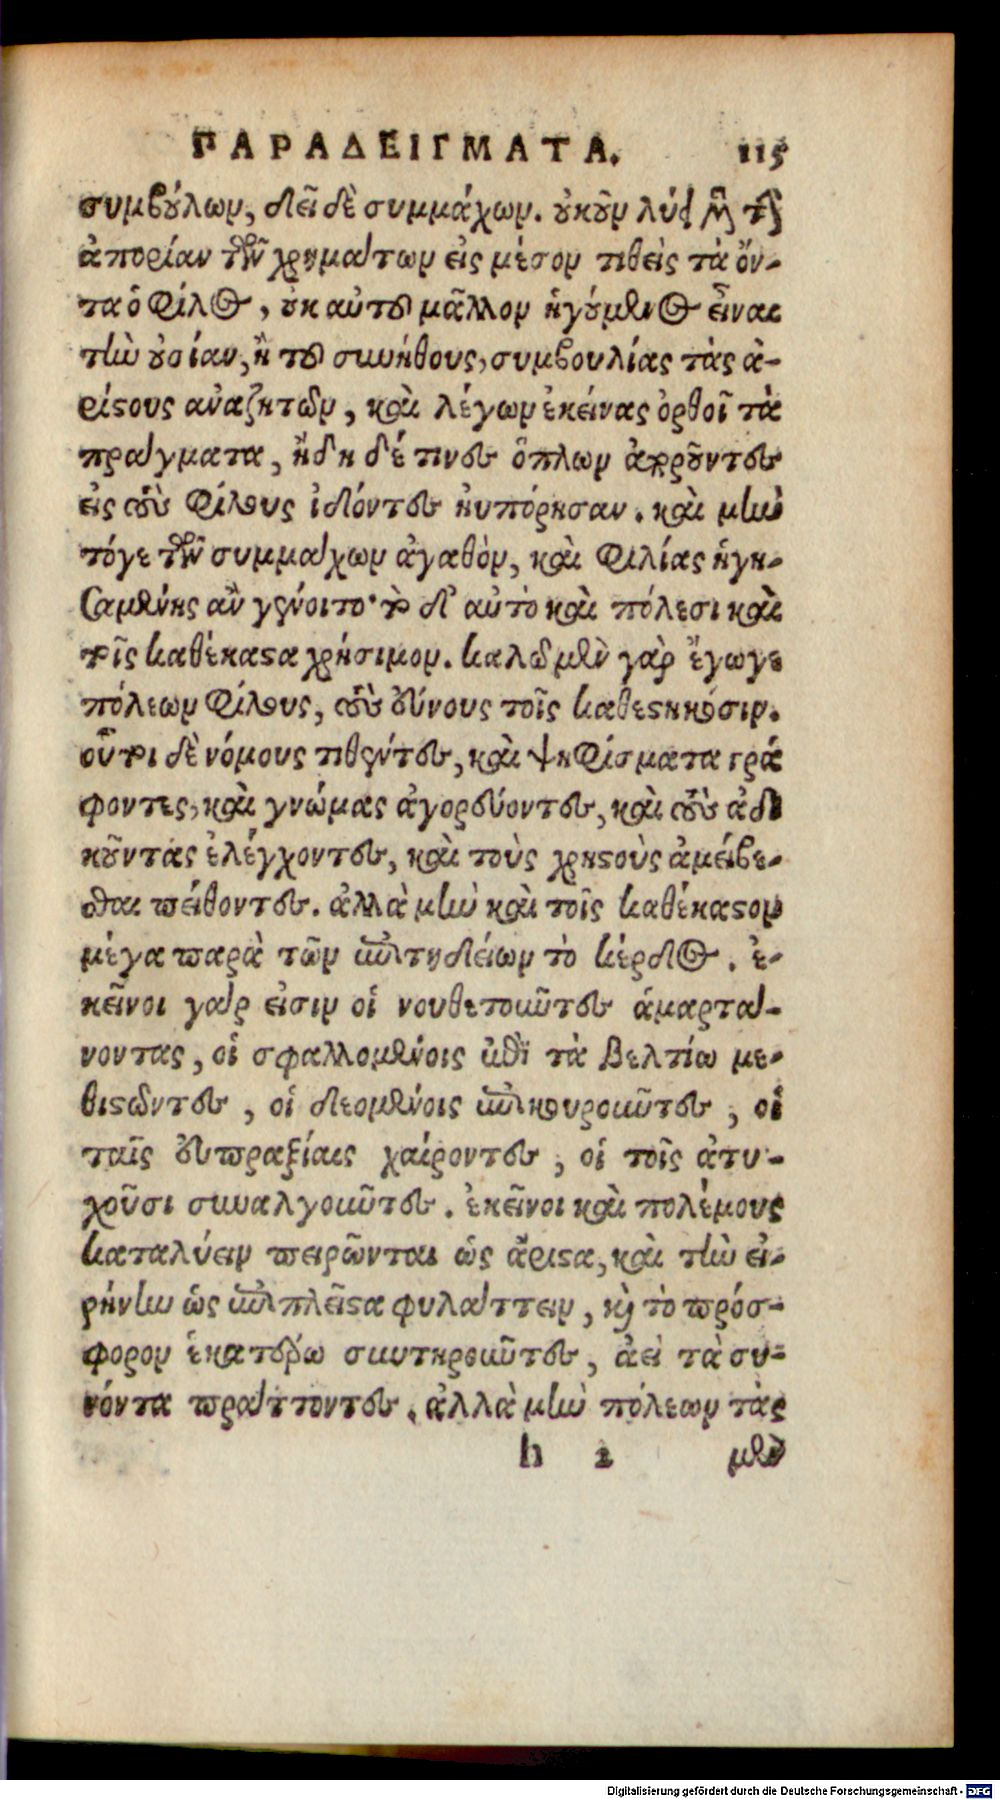 ΠΑΡΑΔΕΙΓΜΑΤΑ. 115
συμβούλων, δεῖ δὲ συμμάχων. οὐκοῦν λύει μὲν τὴν
ἀπορίαν τῶν χρημάτων εἰς μέσον τιθεὶς τὰ ὄν-
τα ὁ φίλος, οὐκ αὐτοῦ μᾶλλον ἡγούμενος εἶναι
τὴν οὐσίαν, ἢ τοῦ συνήθους, συμβουλίας τὰς ἀ-
ρίστους ἀναζητῶν, καὶ λέγων ἐκείνας ὀρθοῖ τὰ
πράγματα, ἤδη δέ τινες ὅπλων ἀποροῦντες
εἰς τοὺς φίλους ἰδόντες ηὐπόρησαν. καὶ μὴν
τόγε τῶν συμμάχων ἀγαθὸν, καὶ φιλίας ἡγη-
σαμένης ἂν γένοιτο· τὸ δ' αὐτὸ καὶ πόλεσι καὶ
τοῖς καθέκαστα χρήσιμον. καλῶ μὲν γὰρ ἔγωγε
πόλεων φίλους, τοὺς εὔνους τοῖς καθεστηκόσιν.
οὗτοι δὲ νόμους τιθέντες, καὶ ψηφίσματα γρά
φοντες, καὶ γνώμας ἀγορεύοντες, καὶ τοὺς ἀδι
κοῦντας ἐλέγχοντες, καὶ τοὺς χρηστοὺς ἀμείβε-
σθαι πείθοντες. ἀλλὰ μὴν καὶ τοῖς καθέκαστον
μέγα παρὰ τῶν ἐπιτηδείων τὸ κέρδος. ἐ-
κεῖνοι γάρ εἰσιν οἱ νουθετοῦντες ἁμαρτά-
νοντας, οἱ σφαλλομένοις ἐπὶ τὰ βελτίω με-
θιστῶντες, οἱ δεομένοις ἐπικουροῦντες, οἱ
ταῖς εὐπραξίαις χαίροντες, οἱ τοῖς ἀτυ-
χοῦσι συναλγοῦντες. ἐκεῖνοι καὶ πολέμους
καταλύειν πειρῶνται ὡς ἄριστα, καὶ τὴν εἰ-
ρήνην ὡς ἐπιπλεῖστα φυλάττειν, καὶ τὸ πρόσ-
φορον ἑκατέρω συντηροῦντες, ἀεὶ τὰ συ-
νόντα πράττοντες. ἀλλὰ μὴν πόλεων τὰς
h 2 μὲν
Digitalisierung gefördert durch die Deutsche Forschungsgemeinschaft - DFG